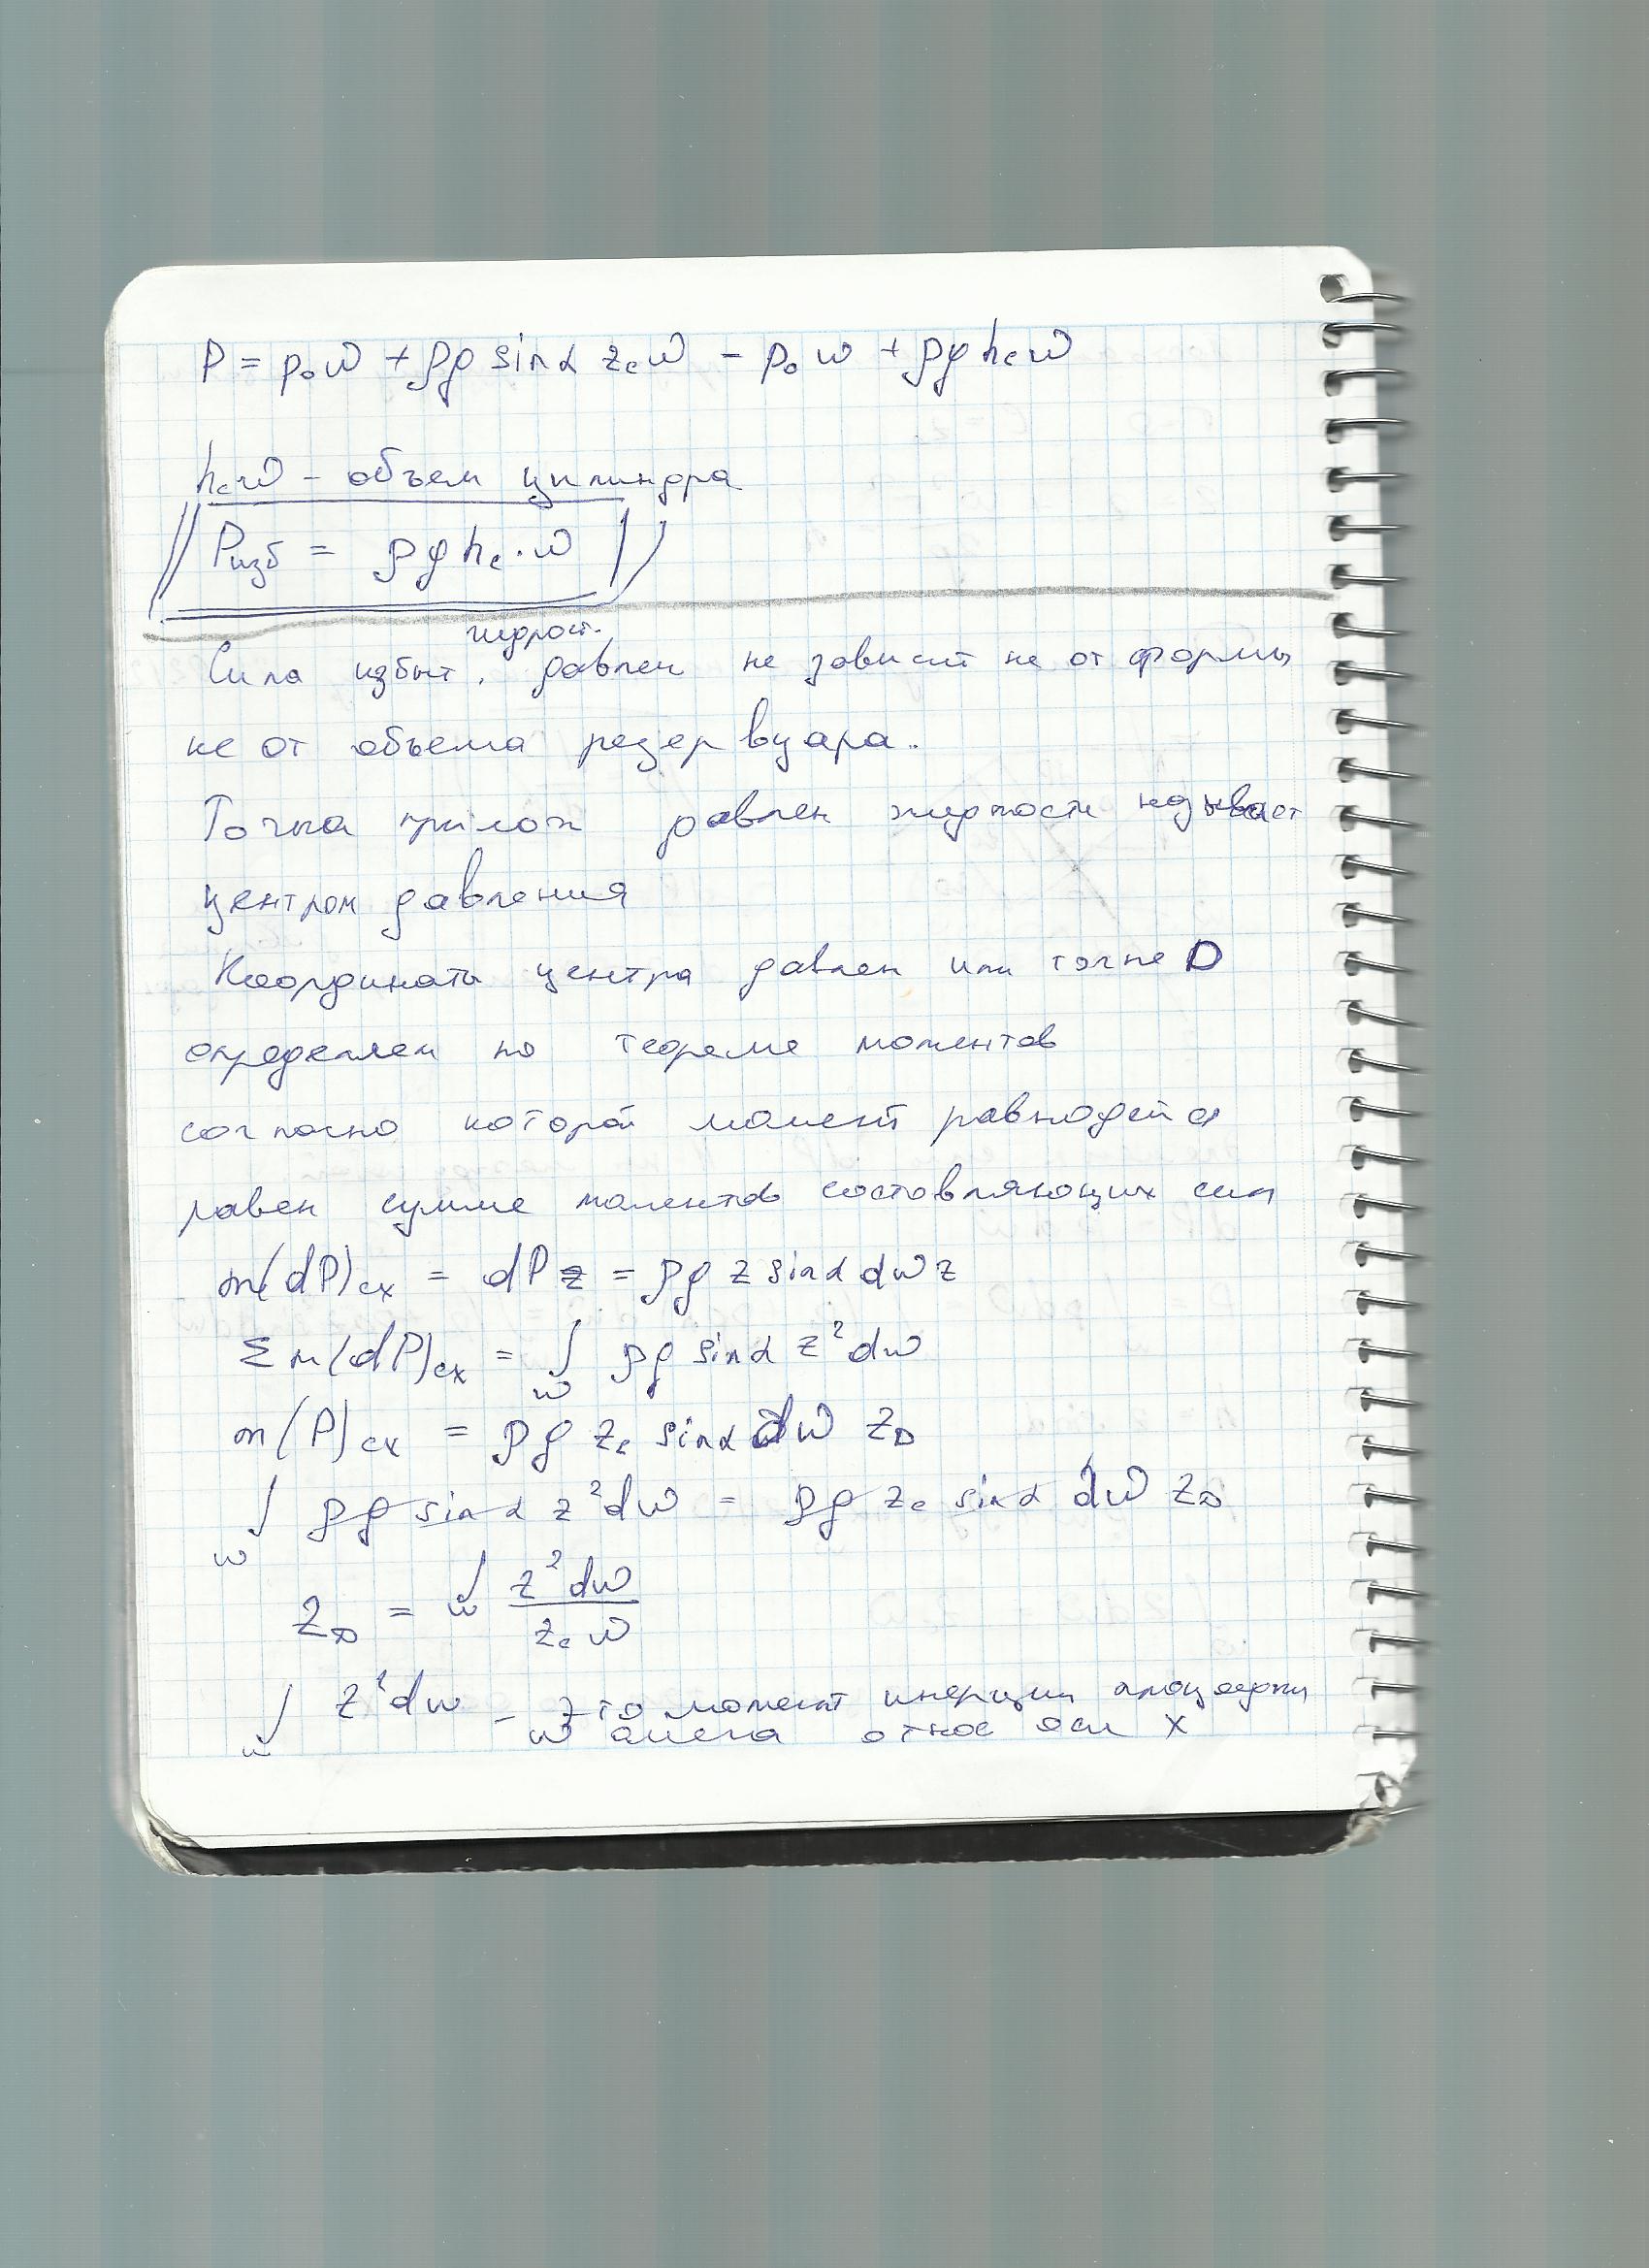 P = p₀ω + ρg sinα z_c ω = p₀ω + ρg h_c ω
h_c ω - объем цилиндра
P_изб = ρg h_c · ω
гидрост.
Сила избыт. давлен не зависит не от формы
не от объема резервуара.
Точка прилож давлен жидкости назывaст
центром давления
Координаты центра давлен или точке D
определяем по теореме моментов
согласно которой момент равнодейс
равен сумме моментов состовляющих сил
m(dP)_cx = dP z = ρg z sinα dω z
Σ m(dP)_cx = ∫_ω ρg sinα z² dω
m(P)_cx = ρg z_c sinα ω z_D
∫_ω ρg sinα z² dω = ρg z_c sinα dω z_D
z_D = ∫_ω z² dω / z_c ω
∫_ω z² dω - это момент инерции площадки
ω омега относ оси x